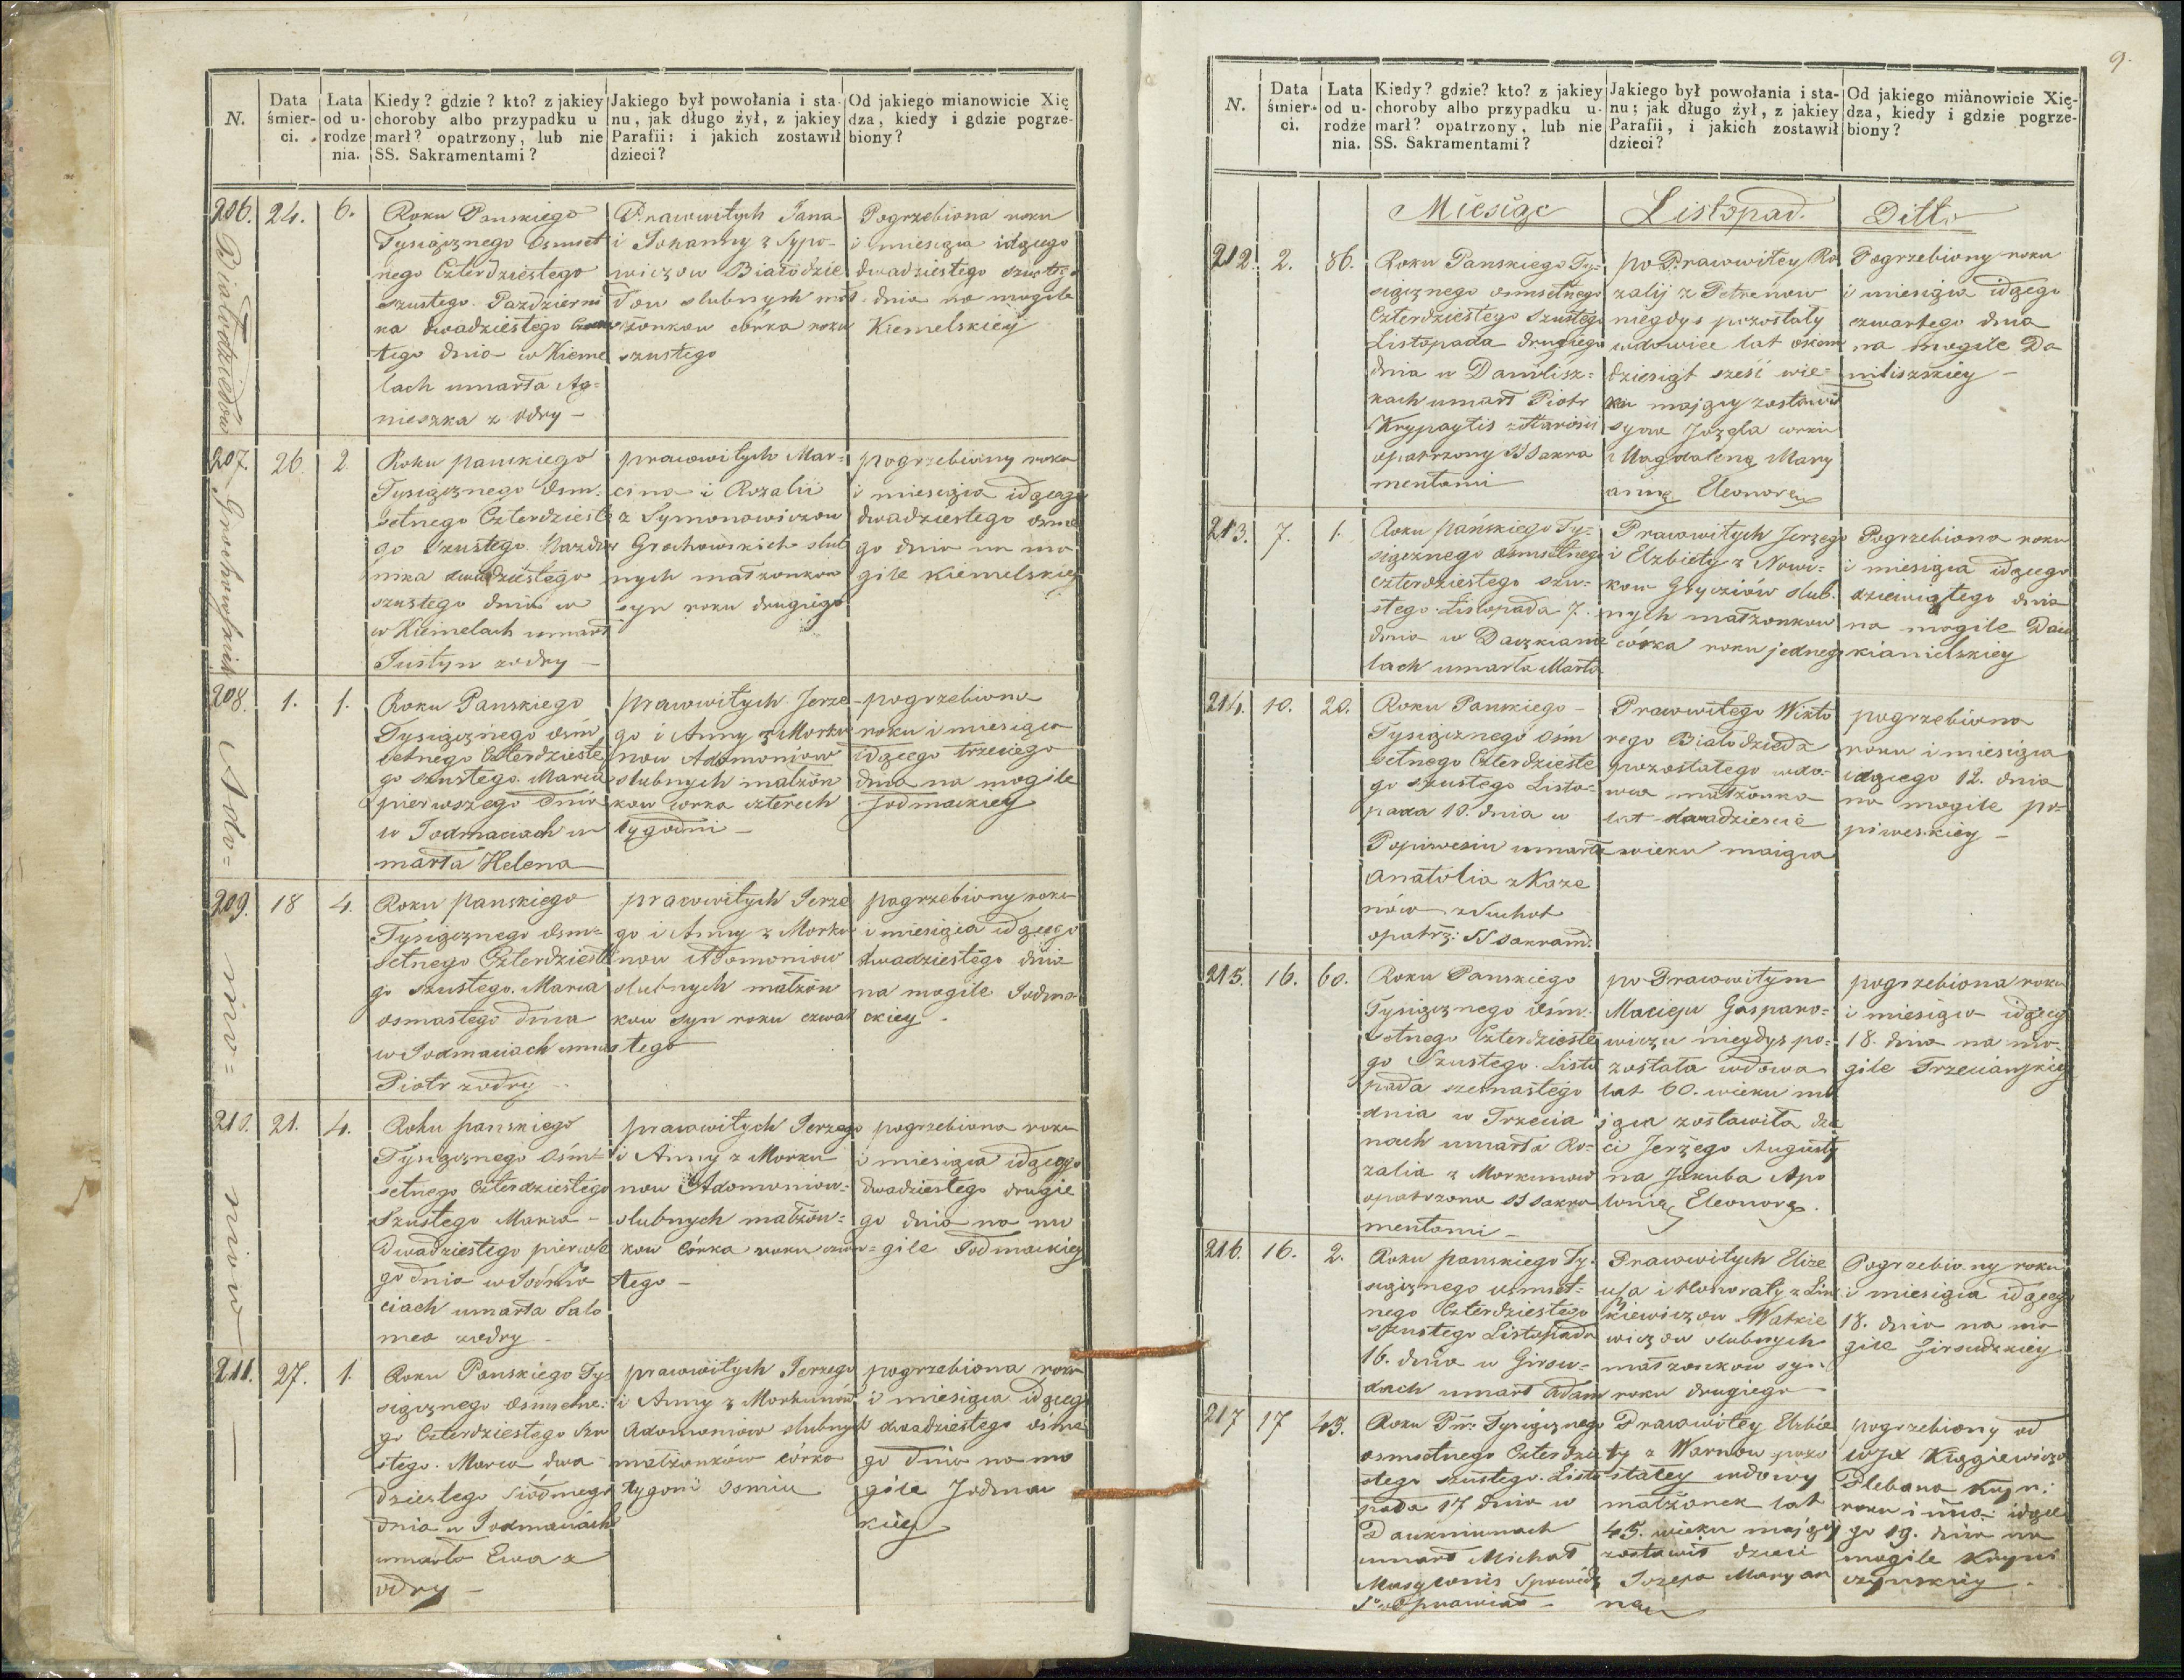 N.
Data śmier-
ci.
Lata
od u-
rodze
nia.
Kiedy? gdzie? kto? z jakiey
choroby albo przypadku u
marł? opatrzony, lub nie
SS. Sakramentami?
Jakiego był powołania i sta-
nu, jak długo żył, z jakiey
Parafii: i jakich zostawił
dzieci?
Od jakiego mianowicie Xię
dza, kiedy i gdzie pogrze-
biony?
206. 24. 6.
Białodziedow
Roku Pnskiego
Tysiącznego Osmset
nego Czterdziestego
szustego. Pazdzierni
ka dwadziestego
tego dnia w Kieme
lach umarła Ag=
nieszka z odry -
Prawowitych Jana
i Johanny z Sypo-
wiczow Białodzie
dow slubnych mał
żonkow córka roku
szustego
Pogrzebiona roku
i miesiąca idącego
dwadziestego szustego
dnia na mogile
Kiemelskiey
207. 26. 2.
Grochowskich
Roku panskiego
Tysiącznego Osm-
setnego Czterdzieste
go Szustego. Pazdzier
nika dwudziestego
szustego dnia w
w Kiemelach umarł
Justyn z odry -
prawowitych Mar-
cina i Rozalii
z Symonowiczow
Grochowskich slub
nych małzonkow
syn roku drugiego
pogrzebiony roku
i miesiąca idącego
dwadziestego osme
go dnia na mo
gile Kiemelskiey
208. 1. 1.
Ado=
Roku Panskiego
Tysiącznego ośm
setnego Czterdzieste
go szustego. Marca
pierwszego dnia
w Jodmaciach u
marła Helena
prawowitych Jerze-
go i Anny z Morku
now Adomoniow
slubnych małżon
kow corka czterech
tygodni -
pogrzebiona
roku i miesiąca
idącego trzeciego
dnia na mogile
Jodmackiey
209. 18 4.
niv=
Roku panskiego
Tysiącznego Osm=
setnego Czterdzieste
go szustego. Marca
osmastego dnia
w Jodmaciach umar
Piotr z odry -
prawowitych Jerze
go i Anny z Morku
now Adomoniow
slubnych małżon
kow syn roku czwar
tego
pogrzebiony roku
i miesiąca idącego
dwadziestego dnia
na mogile Jodma-
ckiey.
210. 21. 4.
now
Roku panskiego
Tysiącznego Ośm=
setnego Czterdziestego
Szustego Marca -
Dwadziestego pierwsze
go dnia w Jodma
ciach umarła Salo
mea z odry -
prawowitych Jerzego
i Anny z Morku
now Adomoniow-
slubnych małżon=
kow Córka roku czwar=
tego -
pogrzebiona roku
i miesiąca idącego
dwadziestego drugie
go dnia na mo
gile Jodmackiey
211. 27. 1.
Roku Panskiego Ty=
siącznego osmsetne-
go Czterdziestego szu
stego. Marca dwa-
dziestego siódmego
dnia w Jodmaciach
umarła Ewa z
odry -
prawowitych Jerzego
i Anny z Morkunów
Adomoniow slubnych
małżonków córka
tygoni osmiu
pogrzebiona roku
i miesiąca idącego
dwadziestego ośme
go dnia na mo
gile Jodmac
kiey
9.
N.
Data
śmier-
ci.
Lata
od u-
rodze
nia.
Kiedy? gdzie? kto? z jakiey
choroby albo przypadku u-
marł? opatrzony, lub nie
SS. Sakramentami?
Jakiego był powołania i sta-
nu; jak długo żył, z jakiey
Parafii, i jakich zostawił
dzieci?
Od jakiego mianowicie Xię-
dza, kiedy i gdzie pogrze-
biony?
Miesiąc Listopad. Ditto
212. 2. 86.
Roku Panskiego Ty=
siącznego osmsetnego
Czterdziestego Szustego
Listopada drugiego
dnia w Daniłisz=
kach umarł Piotr
Krypaytis z starości
opatrzony SS Sakra
mentami
po Prawowitey Ro
zalij z Petrenow
niegdys pozostały
wdowiec lat osiem
dziesiąt sześć wie-
ku mający zostawił
syna Jozefa corki
Magdalenę Mary
annę Eleonorę
Pogrzebiony roku
i miesiąca idącego
czwartego dnia
na mogile Da
niliszskiey -
213. 7. 1.
Roku pańskiego Ty=
siącznego osmsetnego
czterdziestego szu=
stego. Listopada 7.
dnia w Dauxkianie
lach umarła Marta
Prawowitych Jerzego
i Elzbiety z Nowi=
kow Gryciów slub-
nych małzonkow
córka roku jednego
Pogrzebiona roku
i miesiąca idącego
dziewiątego dnia
na mogile Dau
kianielskiey
214. 10. 20.
Roku Panskiego -
Tysiącznego Osm
setnego Czterdzieste
go szustego Listo-
pada 10. dnia w
Popiwesiu umarła
Anatolia z Kaze
nów z Suchot
opatrz: SS sakram.
Prawowitego Wikto
rego Białodzieda
pozostałego wdo-
wca małżonka
lat dwadzieście
wieku maiąca
pogrzebiona
roku i miesiąca
idącego 12. dnia
na mogile po-
piweskiey -
215. 16. 60.
Roku Panskiego
Tysiącznego ośm-
setnego Czterdzieste
go Szustego. Listo
pada szesnastego
dnia w Trzecia
nach umarła Ro-
zalia z Morkunow
opatrzona SS sakra
mentami -
po Prawowitym
Macieju Gasparo-
wiczu niegdys po-
została wdowa
lat 60. wieku ma
jąca zostawiła dzie
ci Jerzego Augusty
na Jakuba Apo
lonią, Eleonorę.
pogrzebiona roku
i miesiąca idącego
18. dnia na mo-
gile Trzeciańskiey
216. 16. 2.
Roku panskiego Ty-
siącznego osmset-
nego Czterdziestego
szustego Listopada
16. dnia w Girsu-
dach umarł Adam
Prawowitych Elize
usa i Honoraty z Lin
kiewiczow Watkie
wiczow slubnych
małzonkow syn
roku drugiego
Pogrzebiony roku
i miesiąca idącego
18. dnia na mo
gile Girsudzkiey
217 17 45.
Roku Pn: Tysiącznego
osmsetnego Czterdzie
stego szustego. Listo
pada 17 dnia w
Daukniunach
umarł Michał
Prawowitey Elzbie
ty z Warnow pozo
stałey wdowy
małżonek lat
45. wieku mający
zostawił dzieci
Jozefa Maryan
nę
pogrzebiony od
Plebana Kuyn:
roku i mca: idące
go 19. dnia na
mogile